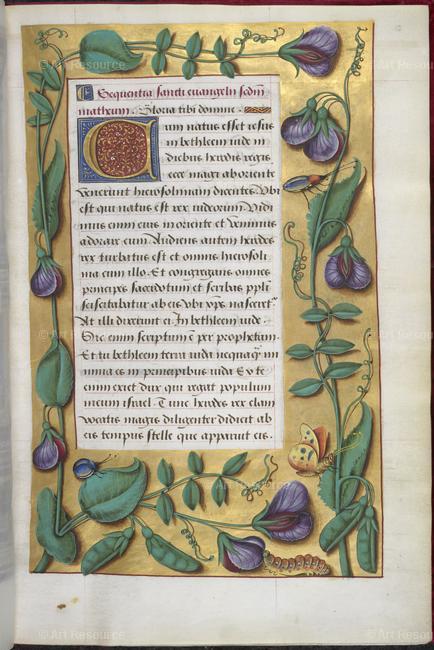 Sequentia sancti euangelii scdm
matheum. Gloria tibi domine.
Cum natus esset iesus
in bethleem iude in
diebus herodis regis
ecce magi ab oriente
venerunt hierosolimam dicentes. Vbi
est qui natus est rex iudeorum? Vidi
mus enim eius in oriente et venimus
adorare eum. Audiens autem herodes
rex turbatus est et omnis hierosoli
ma cum illo. Et congregans omnes
principes sacerdotum et scribas ppli
sciscitabatur ab eis vbi xps nasceret
At illi dixerunt ei. In bethleem iude.
Sic enim scriptum est per prophetam.
Et tu bethleem terra iuda nequaq mi
nima es in principibus iuda Ex te
enim exiet dux qui regat populum
meum israel. Tunc herodes clam
vocatis magis diligenter didicit ab
eis tempus stelle que apparuit eis.
© Art Resource